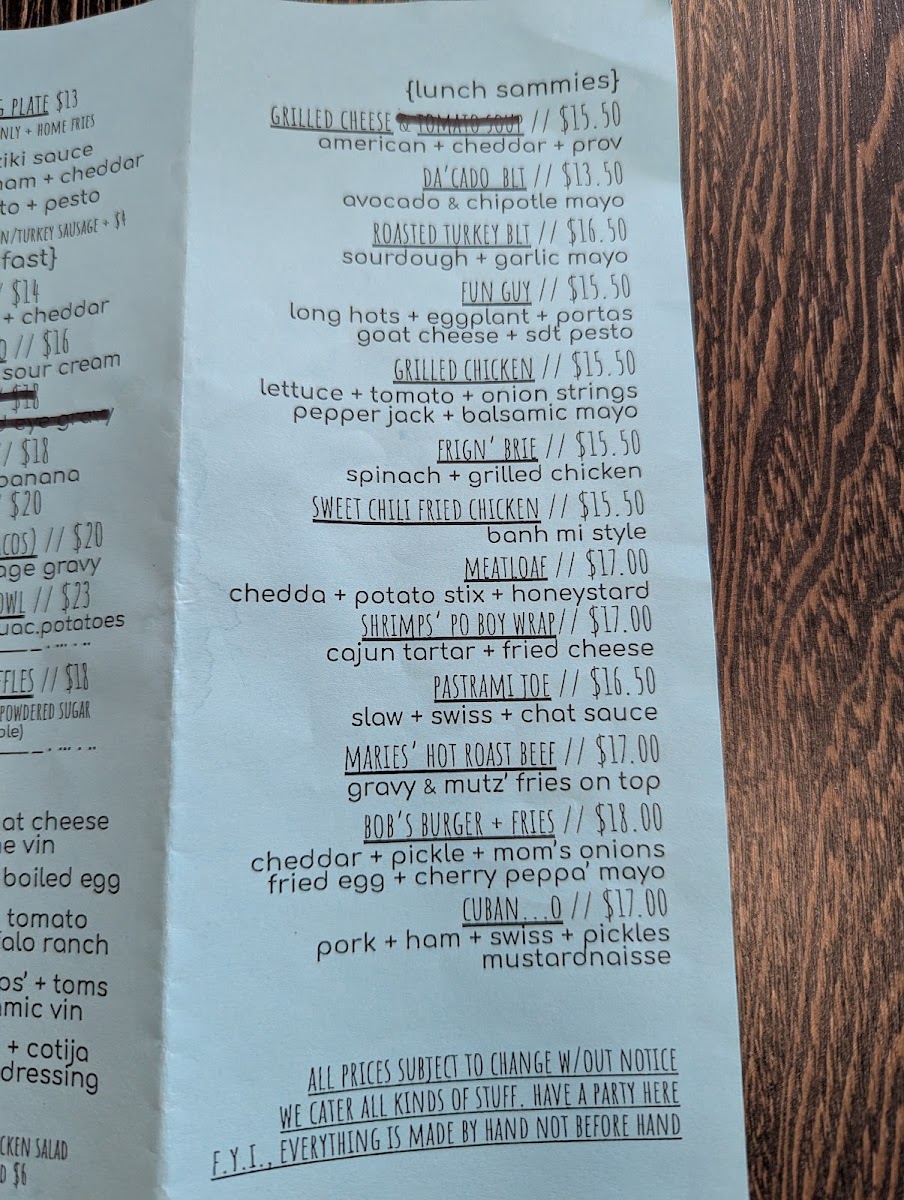 PLATE $13
ONLY + HOME FRIES
sauce
+ cheddar
+ pesto
/TURKEY SAUSAGE + $4
$14
+ cheddar
// $16
sour cream
$18
// $18
banana
$20
// $20
gravy
// $23
potatoes
// $18
POWDERED SUGAR
cheese
vin
boiled egg
tomato
ranch
+ toms
vin
+ cotija
dressing
SALAD
$6
{lunch sammies}
GRILLED CHEESE & TOMATO SOUP // $15.50
american + cheddar + prov
DA'CADO BLT // $13.50
avocado & chipotle mayo
ROASTED TURKEY BLT // $16.50
sourdough + garlic mayo
FUN GUY // $15.50
long hots + eggplant + portas
goat cheese + sdt pesto
GRILLED CHICKEN // $15.50
lettuce + tomato + onion strings
pepper jack + balsamic mayo
FRIGN' BRIE // $15.50
spinach + grilled chicken
SWEET CHILI FRIED CHICKEN // $15.50
banh mi style
MEATLOAF // $17.00
chedda + potato stix + honeystard
SHRIMPS' PO BOY WRAP// $17.00
cajun tartar + fried cheese
PASTRAMI JOE // $16.50
slaw + swiss + chat sauce
MARIES' HOT ROAST BEEF // $17.00
gravy & mutz' fries on top
BOB'S BURGER + FRIES // $18.00
cheddar + pickle + mom's onions
fried egg + cherry peppa' mayo
CUBAN...O // $17.00
pork + ham + swiss + pickles
mustardnaisse
ALL PRICES SUBJECT TO CHANGE W/OUT NOTICE
WE CATER ALL KINDS OF STUFF. HAVE A PARTY HERE
F.Y.I., EVERYTHING IS MADE BY HAND NOT BEFORE HAND